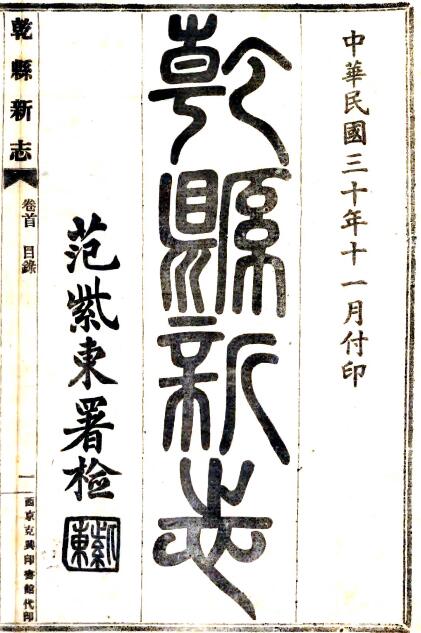 中華民國三十年十一月付印
乾縣新志
范紫東署檢
紫東
乾縣新志
卷首 目錄
一
西京克興印書館代印